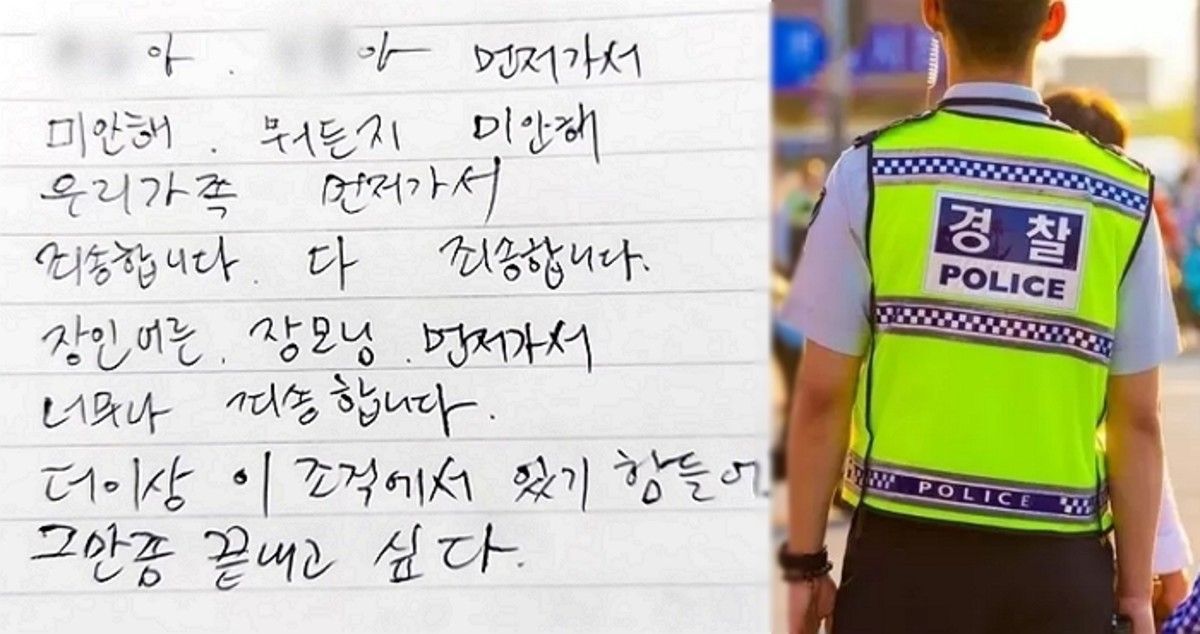 아. 아 먼저가서
미안해. 뭐든지 미안해
우리가족 먼저가서
죄송합니다. 다 죄송합니다.
장인어른. 장모님. 먼저가서
너무나 죄송합니다.
더이상 이 조직에서 있기 힘들어.
그만좀 끝내고 싶다.
경찰
POLICE
POLICE